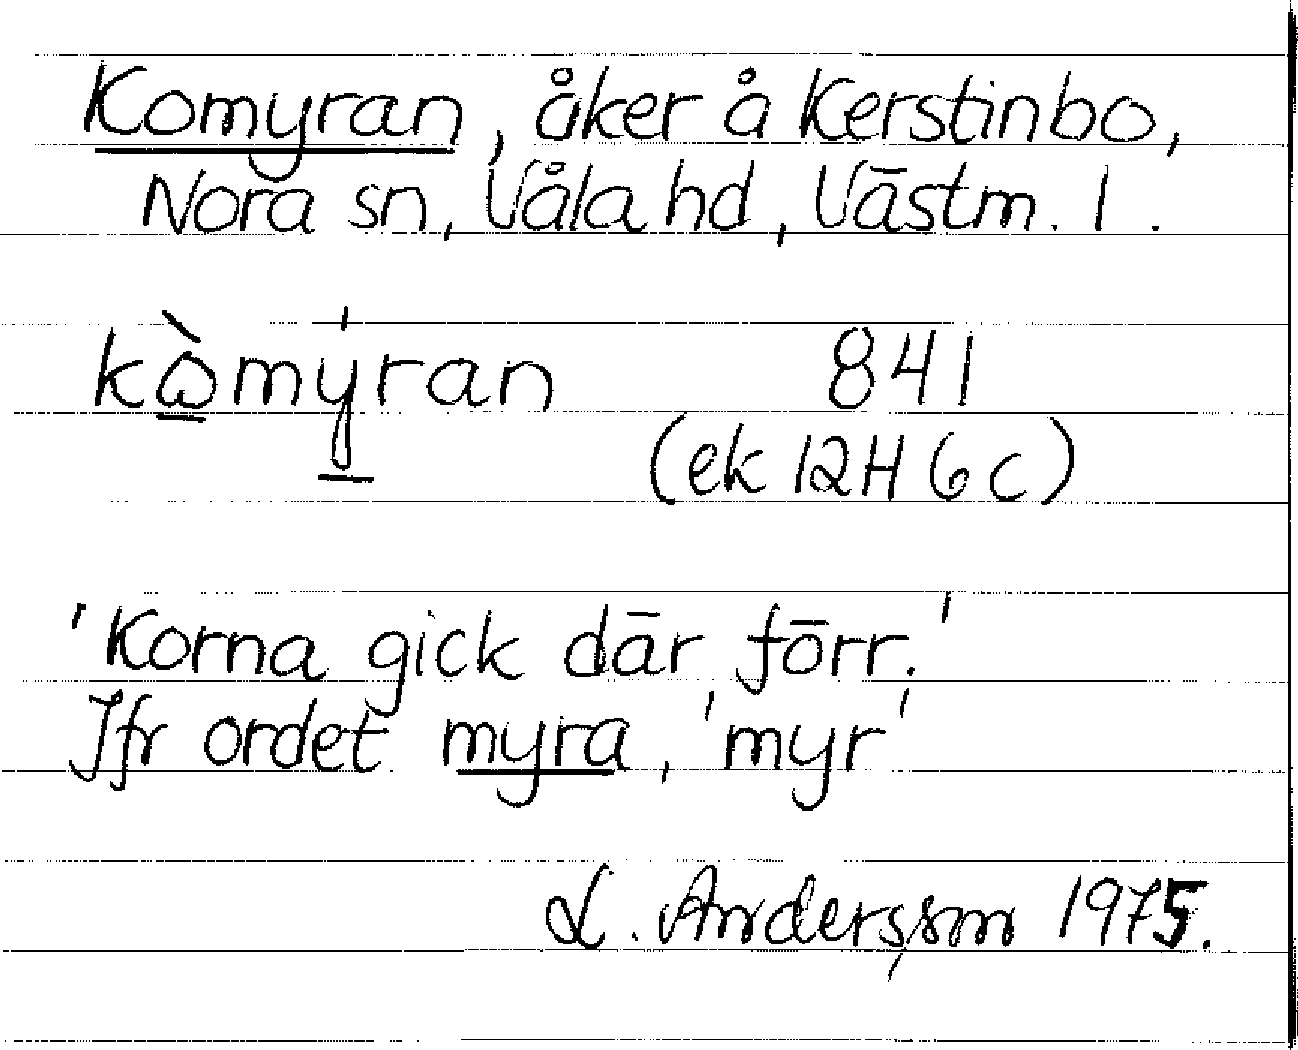 Komyran, åker å Kerstinbo,
Nora sn, Våla hd, Västm. l.
kòmýran 841
(ek 12H 6c)
'Korna gick där förr.'
Jfr ordet myra, 'myr'
L. Andersson 1975.